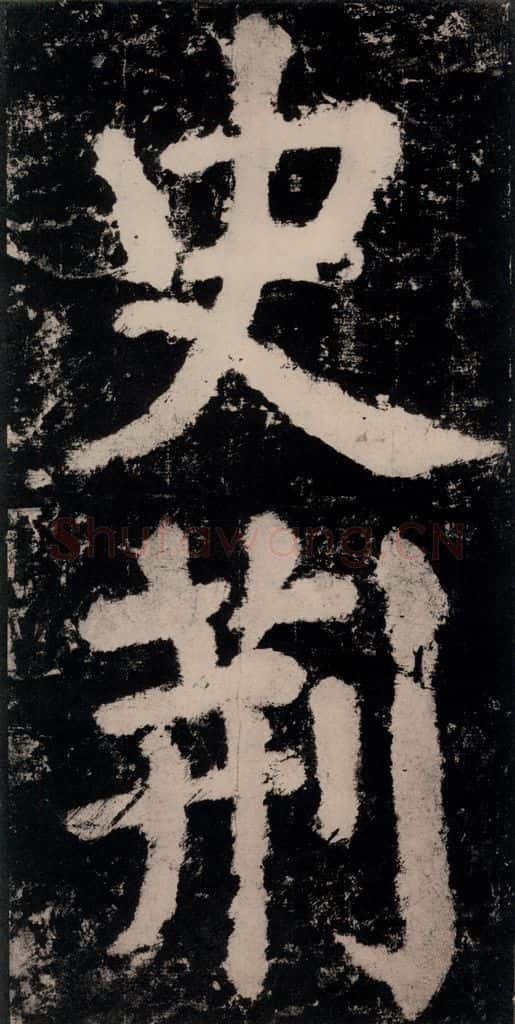 史
荆
Shufawang.CN